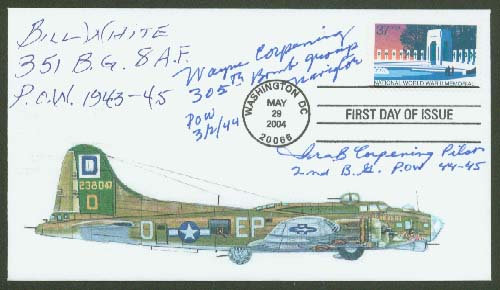 Bill White
351 B.G. 8 A.F.
P.O.W. 1943-45
Wayne Corpening
305th Bomb group
Navigator
POW
3/2/44
37
NATIONAL WORLD WAR II MEMORIAL
WASHINGTON DC
MAY
29
2004
20066
FIRST DAY OF ISSUE
Ira B Corpening Pilot
2nd B.G. POW 44-45
D
238047
D
O
EP